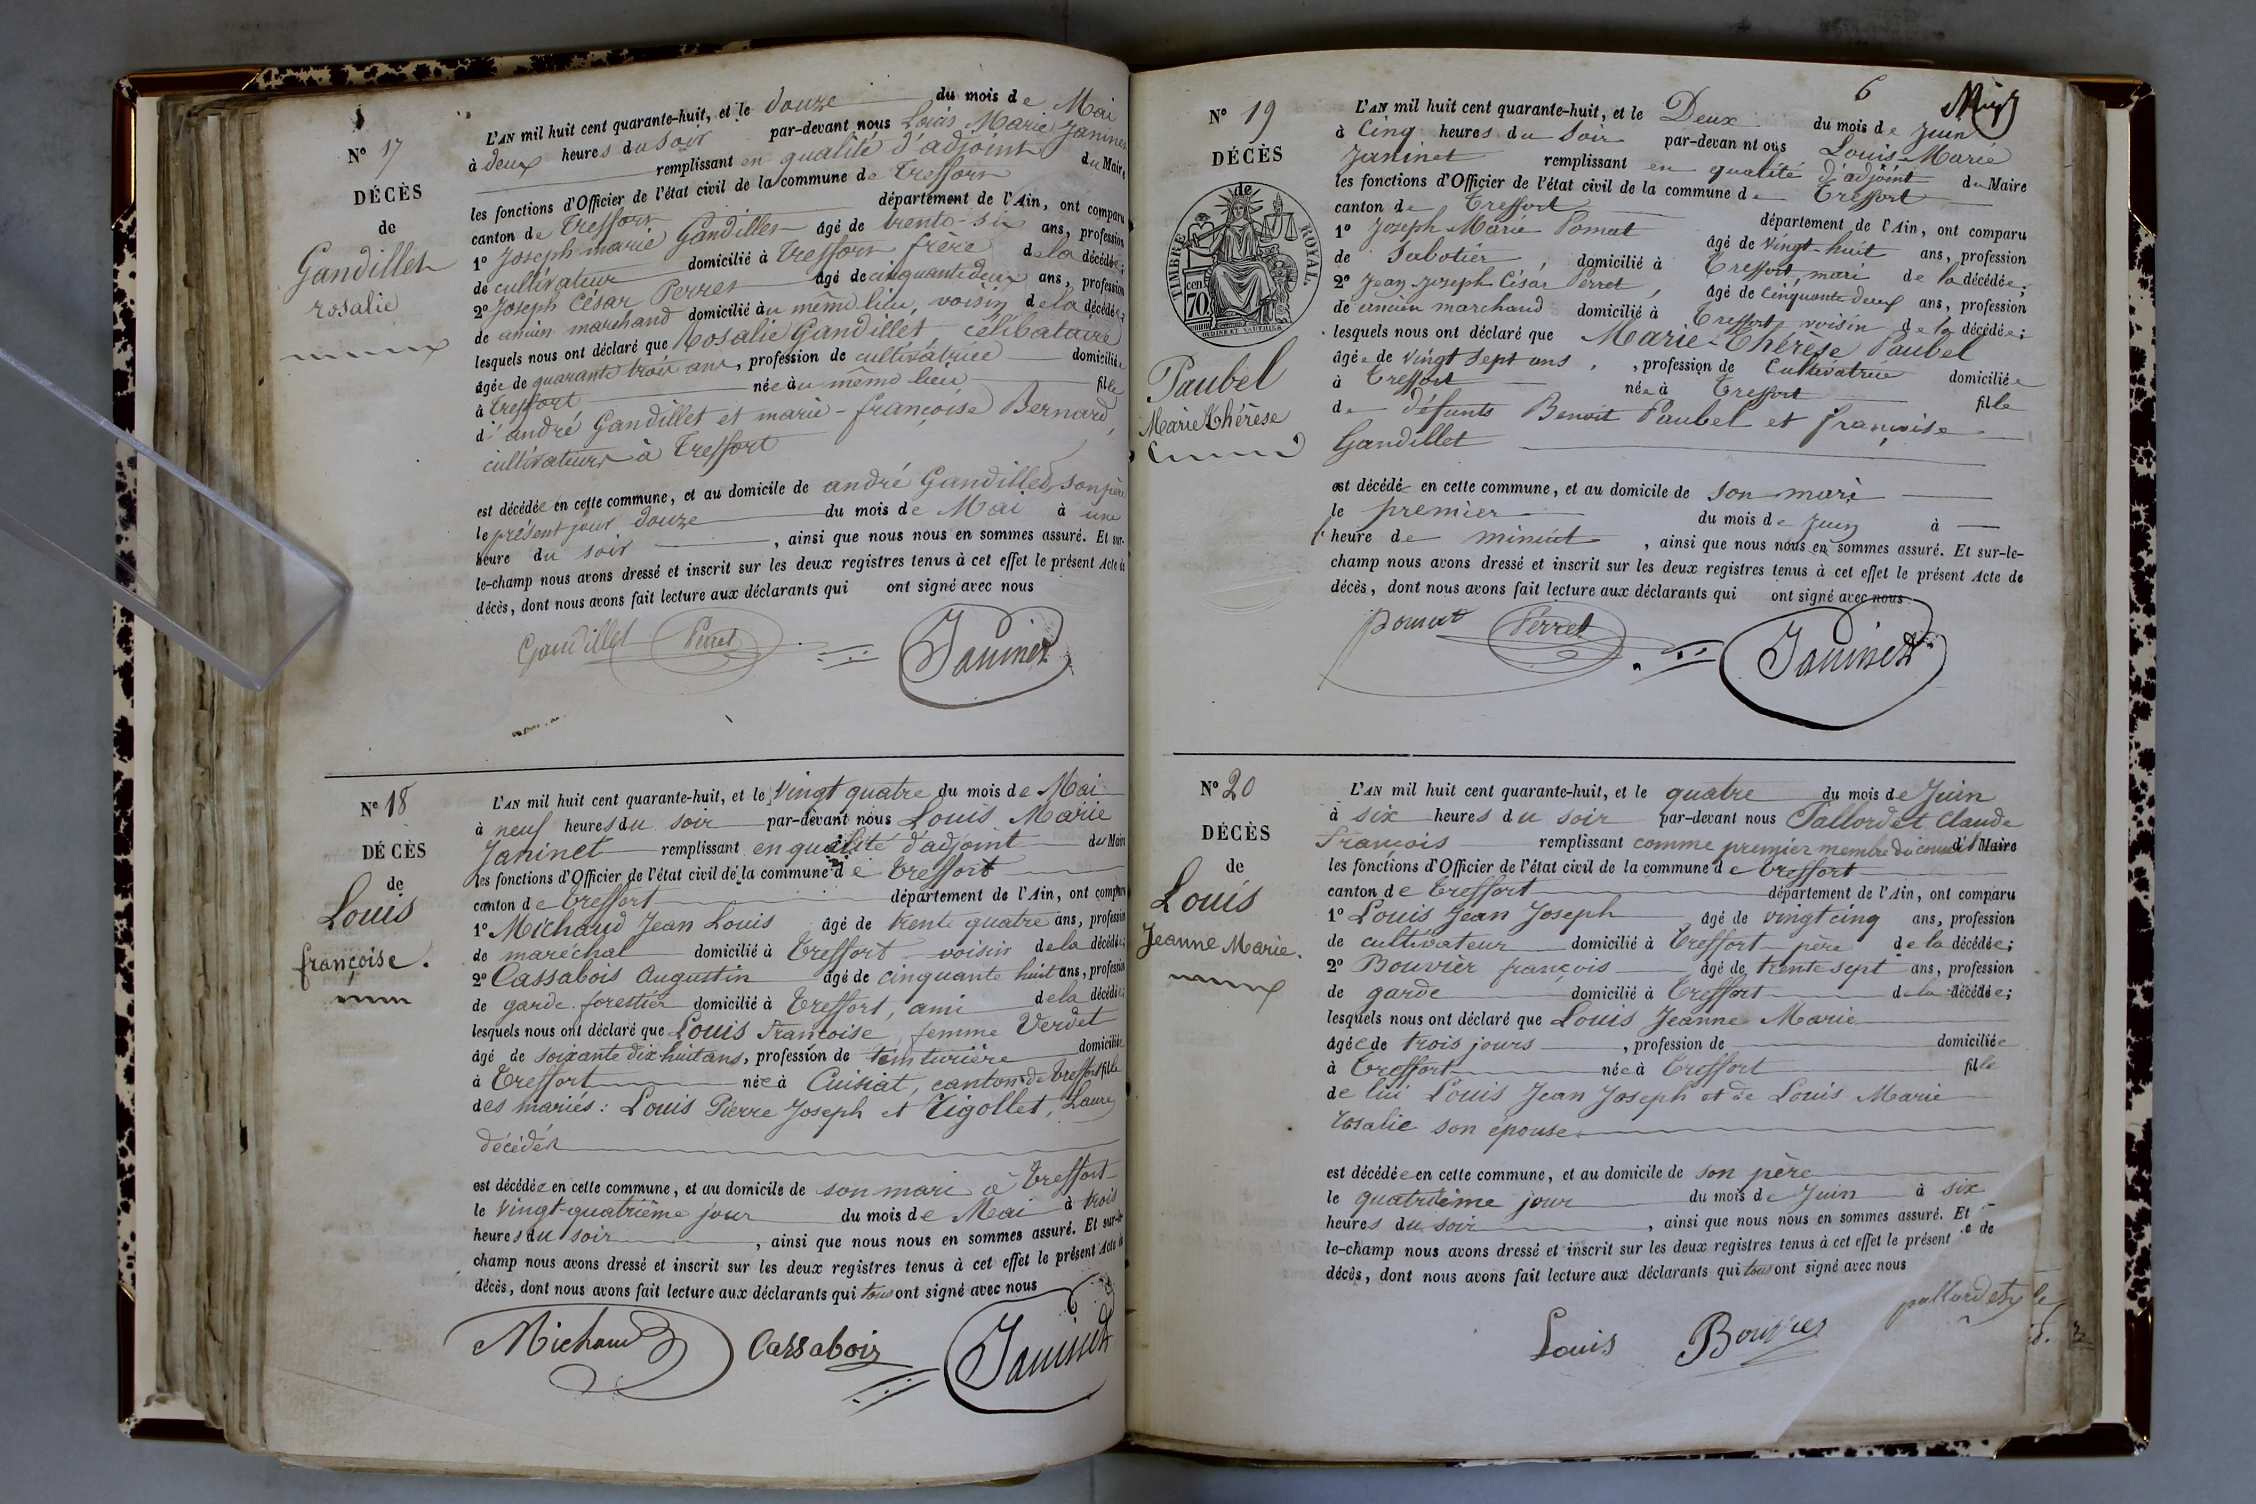 N° 17
DÉCÈS
de
Gandillet
rosalie
L'AN mil huit cent quarante-huit, et le douze du mois de Mai
à deux heures du soir par-devant nous Louis Marie Janinet
remplissant en qualité d'adjoint du Maire
les fonctions d'Officier de l'état civil de la commune de Treffort
canton de Treffort département de l'Ain, ont comparu
1° Joseph marie Gandillet âgé de trente-six ans, profession
de cultivateur domicilié à Treffort frère de la décédée;
2° Joseph César Perret âgé de cinquante deux ans, profession
de ancien marchand domicilié au même lieu, voisin de la décédée;
lesquels nous ont déclaré que Rosalie Gandillet célibataire
âgée de quarante trois ans, profession de cultivatrice domiciliée
à Treffort née au même lieu fille
d'andré Gandillet et marie-françoise Bernard,
cultivateurs à Treffort
est décédée en cette commune, et au domicile de andré Gandillet, son père
le présent jour douze du mois de Mai à une
heure du soir, ainsi que nous nous en sommes assuré. Et sur-
le-champ nous avons dressé et inscrit sur les deux registres tenus à cet effet le présent Acte de
décès, dont nous avons fait lecture aux déclarants qui ont signé avec nous
Gandillet Perret Janinet
N° 18
DÉCÈS
de
Louis
françoise.
L'AN mil huit cent quarante-huit, et le vingt quatre du mois de Mai
à neuf heures du soir par-devant nous Louis Marie
Janinet remplissant en qualité d'adjoint du Maire
les fonctions d'Officier de l'état civil de la commune de Treffort
canton de Treffort département de l'Ain, ont comparu
1° Michaud Jean Louis âgé de trente quatre ans, profession
de maréchal domicilié à Treffort voisin de la décédée;
2° Cassabois Augustin âgé de cinquante huit ans, profession
de garde forestier domicilié à Treffort, ami de la décédée;
lesquels nous ont déclaré que Louis Françoise, femme Verdet
âgé de soixante dix huit ans, profession de teinturière domiciliée
à Treffort née à Cuisiat, canton de Treffort fille
des mariés: Louis Pierre Joseph et Tigollet, Laure
décédés
est décédée en cette commune, et au domicile de son mari à Treffort
le vingt-quatrième jour du mois de Mai à trois
heures du soir, ainsi que nous nous en sommes assuré. Et sur-le-
champ nous avons dressé et inscrit sur les deux registres tenus à cet effet le présent Acte de
décès, dont nous avons fait lecture aux déclarants qui tous ont signé avec nous
Michaud Cassabois Janinet
6
N° 19
DÉCÈS
de
TIMBRE ROYAL
70 cen
Paubel
Marie thérèse
L'AN mil huit cent quarante-huit, et le Deux du mois de Juin
à Cinq heures du Soir par-devan nt ous Louis-Marie
Janinet remplissant en qualité d'adjoint du Maire
les fonctions d'Officier de l'état civil de la commune de Treffort
canton de Treffort département de l'Ain, ont comparu
1° Joseph Marie Pomat âgé de vingt-huit ans, profession
de Sabotier, domicilié à Treffort, mari de la décédée;
2° Jean Joseph César Perret, âgé de cinquante deux ans, profession
de ancien marchand domicilié à Treffort, voisin de la décédée;
lesquels nous ont déclaré que Marie-Thérèse Paubel
âgée de vingt sept ans, profession de Cultivatrice domiciliée
à Treffort née à Treffort fille
de défunts Benoit Paubel et françoise
Gandillet
est décédé en cette commune, et au domicile de son mari
le premier du mois de Juin à
heure de minuit, ainsi que nous nous en sommes assuré. Et sur-le-
champ nous avons dressé et inscrit sur les deux registres tenus à cet effet le présent Acte de
décès, dont nous avons fait lecture aux déclarants qui ont signé avec nous.
Pomat Perret Janinet
N° 20
DÉCÈS
de
Louis
Jeanne Marie.
L'AN mil huit cent quarante-huit, et le quatre du mois de Juin
à six heures du soir par-devant nous Pallordet Claude
François remplissant comme premier membre du conseil Maire
les fonctions d'Officier de l'état civil de la commune de Treffort
canton de Treffort département de l'Ain, ont comparu
1° Louis Jean Joseph âgé de vingt cinq ans, profession
de cultivateur domicilié à Treffort père de la décédée;
2° Bouvier françois âgé de trente sept ans, profession
de garde domicilié à Treffort de la décédée;
lesquels nous ont déclaré que Louis Jeanne Marie
âgée de trois jours, profession de domiciliée
à Treffort née à Treffort fille
de lui Louis Jean Joseph et de Louis Marie
Rosalie son épouse
est décédée en cette commune, et au domicile de son père
le quatrième jour du mois de Juin à six
heures du soir, ainsi que nous nous en sommes assuré. Et
le-champ nous avons dressé et inscrit sur les deux registres tenus à cet effet le présent e de
décès, dont nous avons fait lecture aux déclarants qui tous ont signé avec nous
Louis Bouvier pallordet